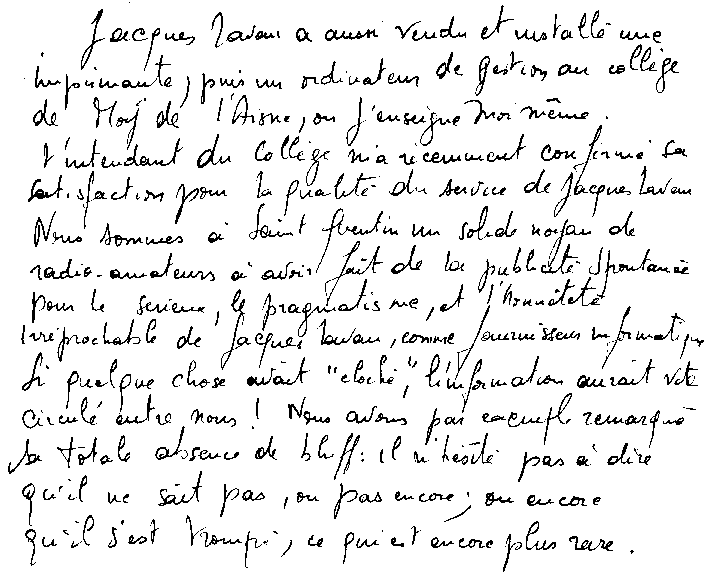 Jacques Lavau a aussi vendu et installé une
imprimante, puis un ordinateur de gestion au collège
de Moÿ de l'Aisne, ou j'enseigne moi même.
L'intendant du collège m'a récemment confirmé sa
satisfaction pour la qualité du service de Jacques Lavau
Nous sommes à Saint Quentin un solide noyau de
radio-amateurs à avoir fait de la publicité spontanée
pour le sérieux, le pragmatisme, et l'honnêteté
irréprochable de Jacques Lavau, comme fournisseur informatique
Si quelque chose avait "cloché", l'information aurait vite
circulé entre nous ! Nous avons par exemple remarqué
sa totale absence de bluff : il n'hésite pas à dire
qu'il ne sait pas, ou pas encore ; ou encore
qu'il s'est trompé, ce qui est encore plus rare.